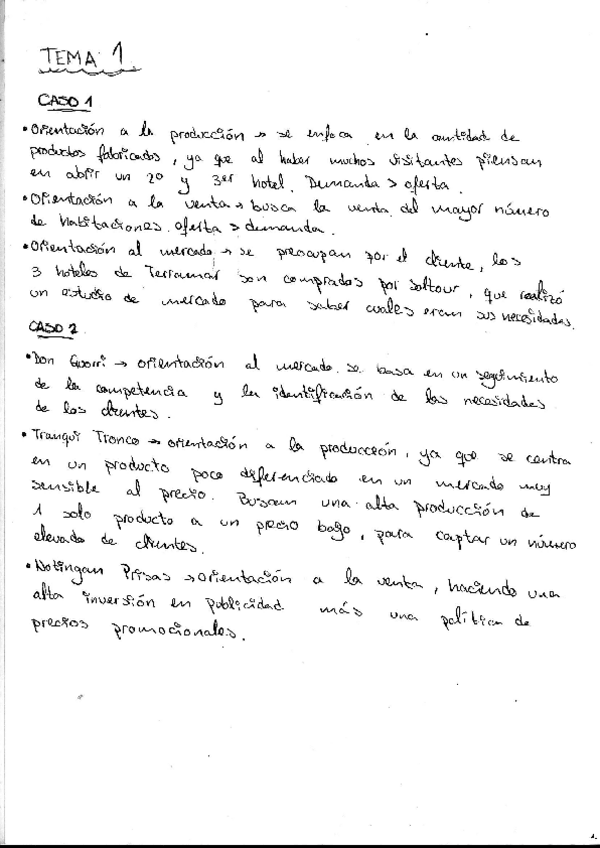 TEMA 1
CASO 1
• Orientación a la producción → se enfoca en la cantidad de
productos fabricados, ya que al haber muchos visitantes piensan
en abrir un 2o y 3er hotel. Demanda > oferta.
• Orientación a la venta → busca la venta del mayor número
de habitaciones. oferta > demanda.
• Orientación al mercado → se preocupan por el cliente, los
3 hoteles de Terramar son comprados por Soltour, que realizó
un estudio de mercado para saber cuales eran sus necesidades.
CASO 2
• Don Gurri → orientación al mercado. se basa en un seguimiento
de la competencia y la identificación de las necesidades
de los clientes.
• Tranqui Tronco → orientación a la producción, ya que se centra
en un producto poco diferenciado en un mercado muy
sensible al precio. Buscan una alta producción de
1 solo producto a un precio bajo, para captar un número
elevado de clientes.
• Notingan Prisas → orientación a la venta, haciendo una
alta inversión en publicidad más una política de
precios promocionales.